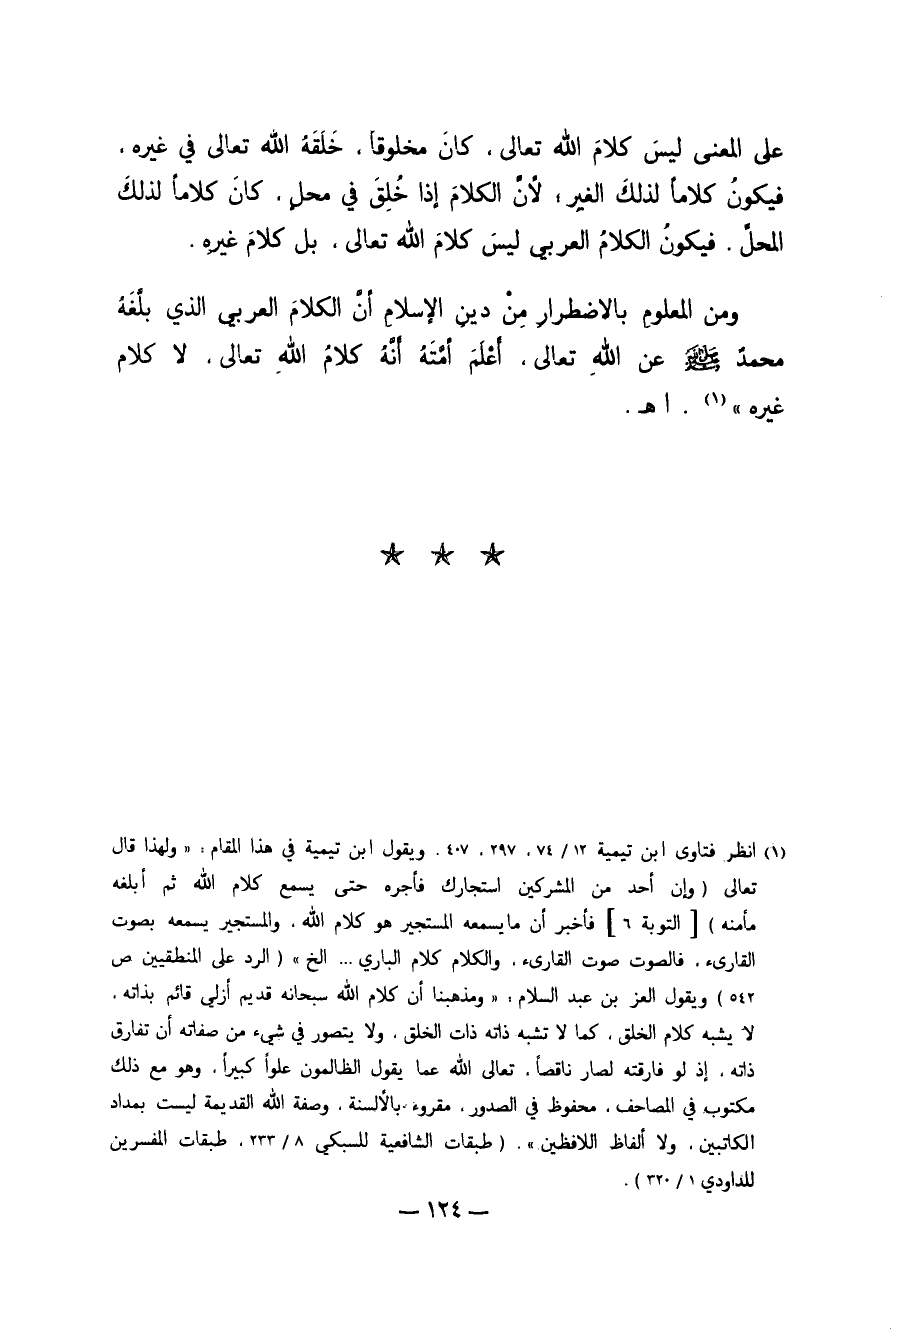 على المعنى ليسَ كلامَ الله تعالى ، كانَ مخلوقاً ، خَلَقَهُ الله تعالى في غيره ،
فيكونُ كلاماً لذلكَ الغير ؛ لأنَّ الكلامَ إذا خُلِقَ في محلٍ ، كانَ كلاماً لذلكَ
المحلَّ . فيكونُ الكلامُ العربي ليسَ كلامَ الله تعالى ، بل كلامَ غيرهِ .
ومن المعلومِ بالاضطرارِ مِنْ دينِ الإسلامِ أنَّ الكلامَ العربي الذي بلَّغَهُ
محمدٌ ﷺ عن اللهِ تعالى ، أَعْلَمَ أمَّتَهُ أنَّهُ كلامُ اللهِ تعالى ، لا كلام
غيره » (١) . ا هـ .
★ ★ ★
(١) انظر فتاوى ابن تيمية ١٢ / ٧٤ ، ٢٩٧ ، ٤٠٧ . ويقول ابن تيمية في هذا المقام : « ولهذا قال
تعالى ( وإن أحد من المشركين استجارك فأجره حتى يسمع كلام الله ثم أبلغه
مأمنه ) [ التوبة ٦ ] فأخبر أن مايسمعه المستجير هو كلام الله ، والمستجير يسمعه بصوت
القارىء ، فالصوت صوت القارىء ، والكلام كلام الباري ... الخ » ( الرد على المنطقيين ص
٥٤٢ ) ويقول العز بن عبد السلام : « ومذهبنا أن كلام الله سبحانه قديم أزلي قائم بذاته ،
لا يشبه كلام الخلق ، كما لا تشبه ذاته ذات الخلق ، ولا يتصور في شيء من صفاته أن تفارق
ذاته ، إذ لو فارقته لصار ناقصاً ، تعالى الله عما يقول الظالمون علواً كبيراً ، وهو مع ذلك
مكتوب في المصاحف ، محفوظ في الصدور ، مقروء بالألسنة ، وصفة الله القديمة ليست بمداد
الكاتبين ، ولا ألفاظ اللافظين » . ( طبقات الشافعية للسبكي ٨ / ٢٣٣ ، طبقات المفسرين
للداودي ١ / ٣٢٠ ) .
— ١٢٤ —